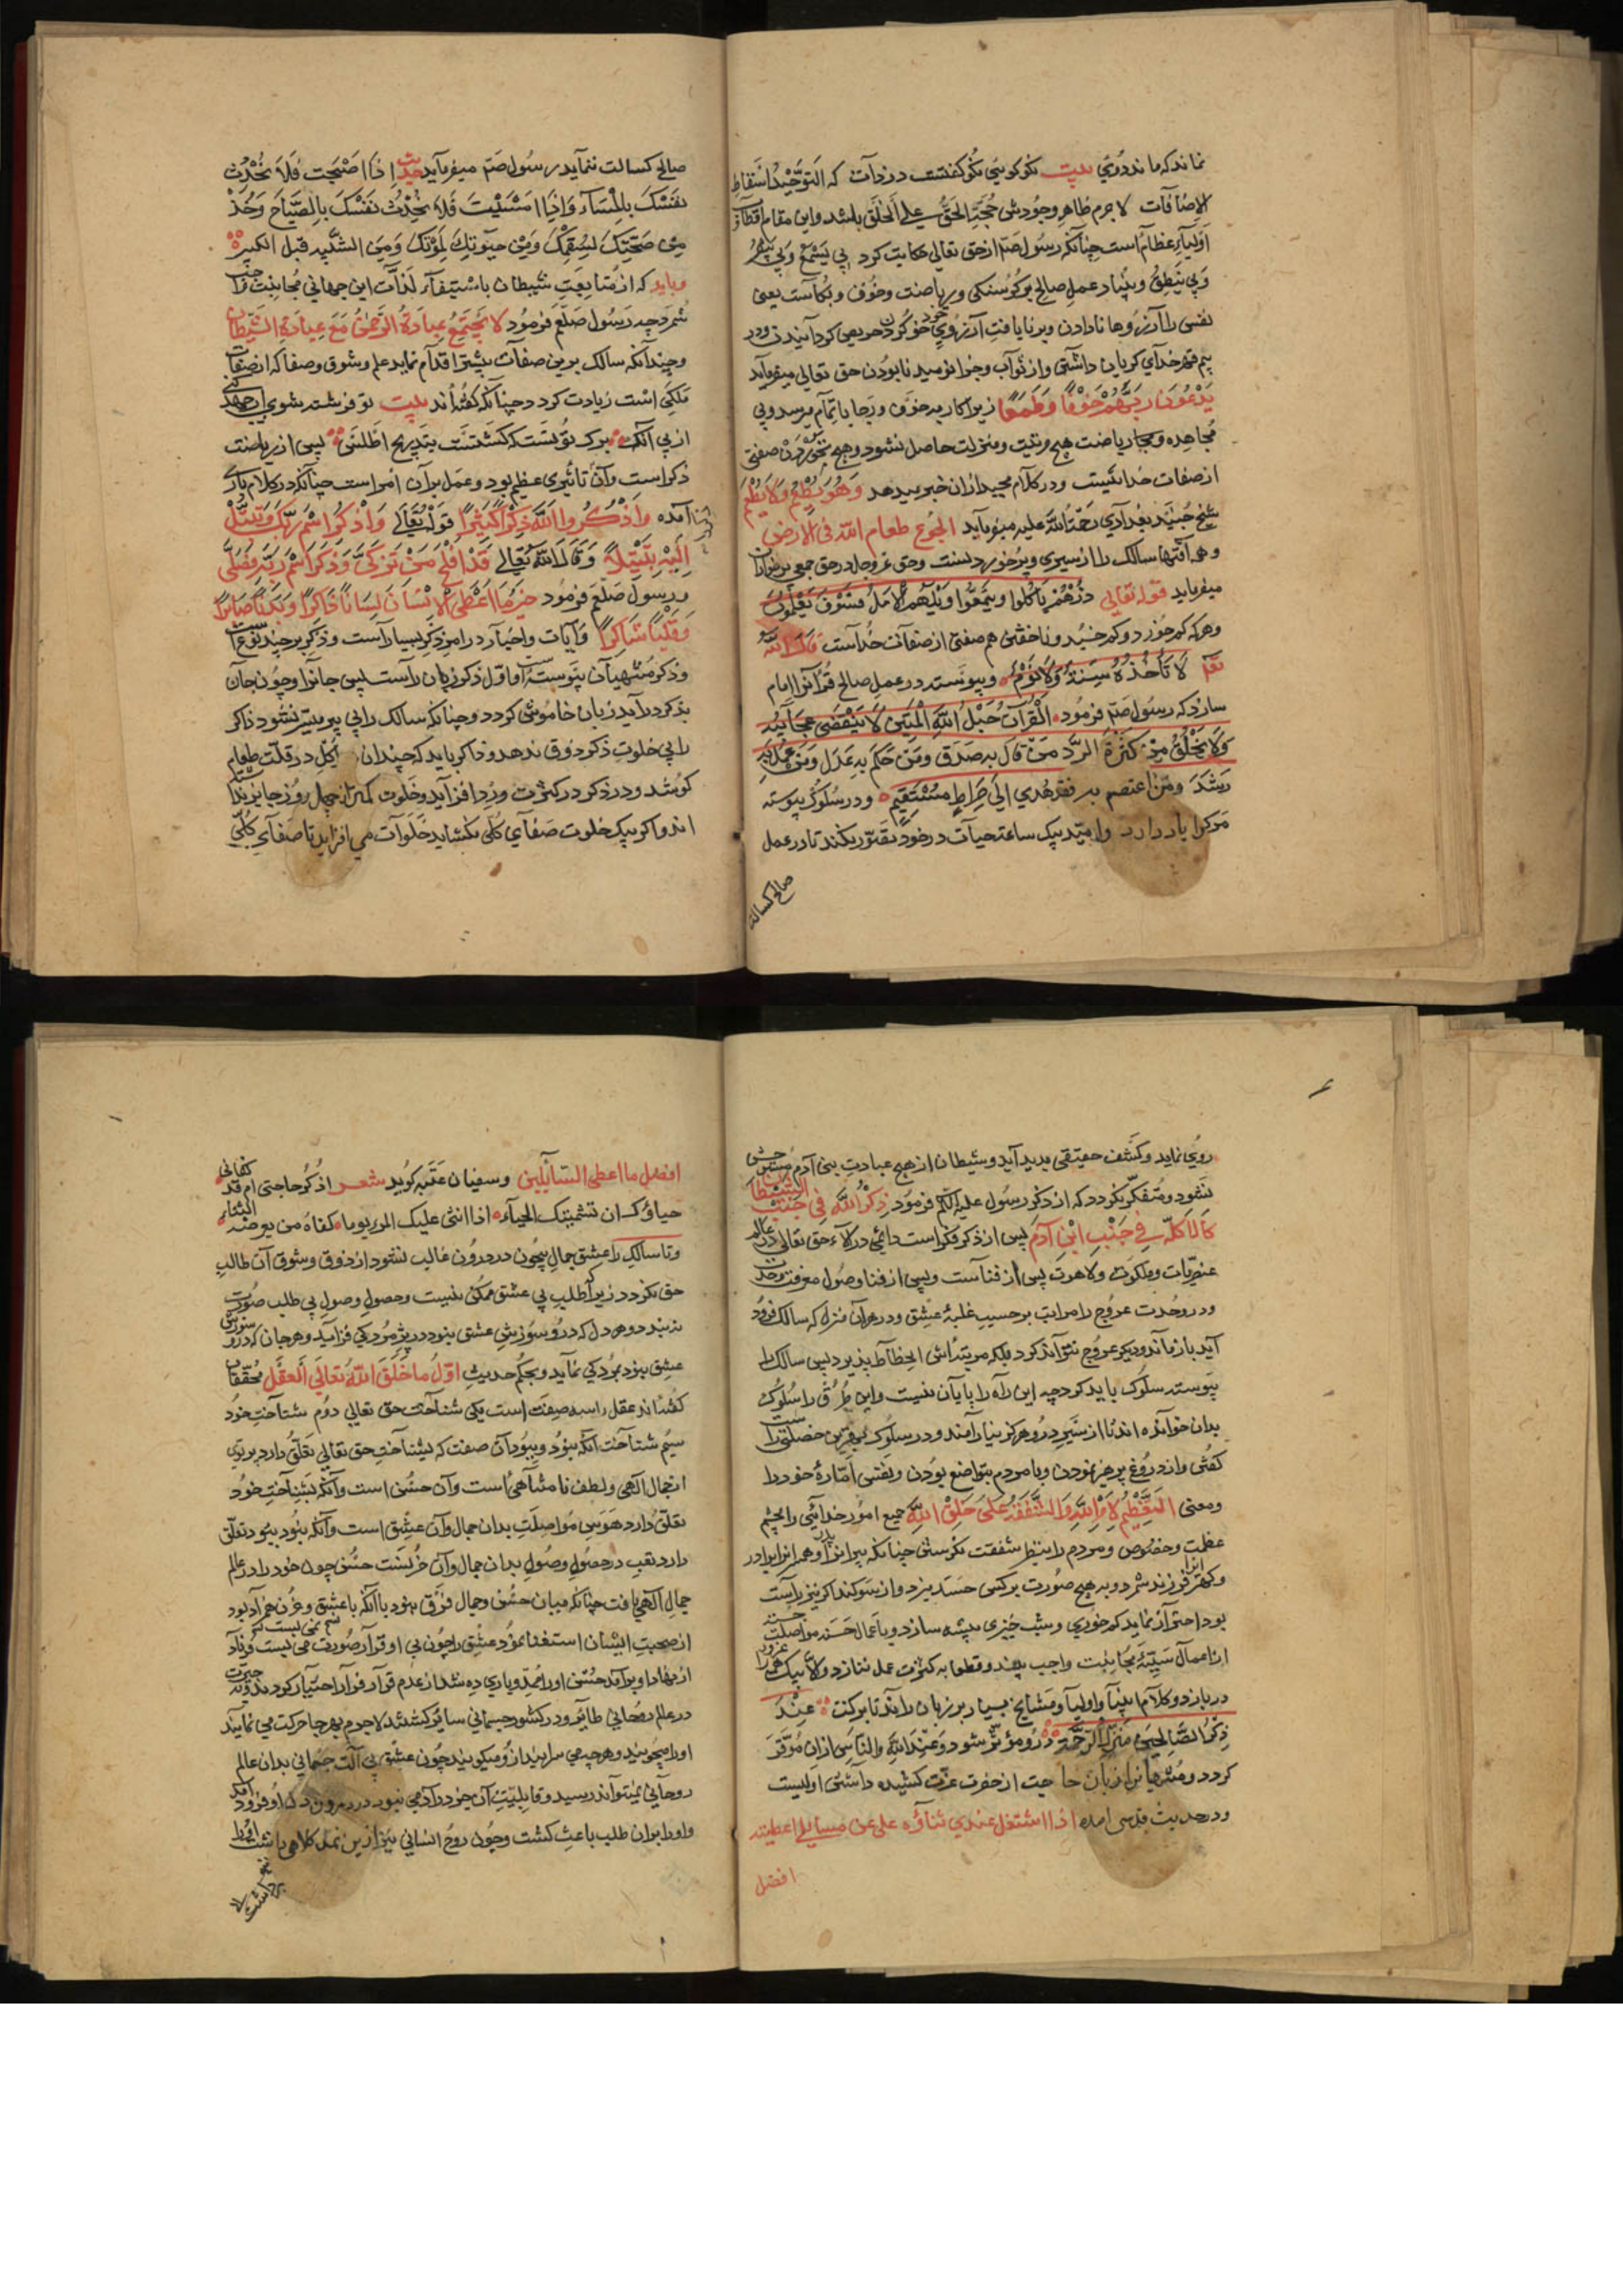 نماند که ماند دُوئی بیت نکو کویئ نکو کفتست در ذات که التَوحیدُ اسقاط
الاِضافات لاجرم ظاهرِ وجودش حُجّة الحقّ علی الخلق باشد واین مقام اقطاب و
اولیآءِ عظام است چنانکه رسول صَم از حق تعالی حکایت کرد بی یَسْمَعُ وَبی یبصُر
وَبی یَنطِقُ وبنیاد عملِ صالح بر کُرسنکی وریاضت وخوف وبُکاست یعنی
نفس را آرزوها نادادن وبر نایافتِ آرزوی خود خو کردن حریص کردانیدن ودر
بیم قهرِ خدآی کریان داشتن واز ثوآب وجزا نومید نابودن حق تعالی میفرماید
یَدْعُونَ رَبَّهُمْ خَوْفًا وَطَمَعًا زیرا کار به خوف ورَجا باتمام میرسد وبی
مُجاهده وبیجا ریاضت هیچ مرتبت ومنزلت حاصل نشود وهیچ نخوردن صفتی
از صفات خدائیست ودر کلام مجید ازان خبر میدهد وَهُوَ یُطْعِمُ وَلَا یُطْعَمُ
شیخ جُنَید بغدآدی رَحمَةُ اللّه علیه میفرماید الجُوع طعام اللّه فی الارض
وهمه آفتها سالک را از سیری وپُرخوردنست وحق عزوجل در حق جمعی
میفرماید قوله تعالی ذَرْهُمْ یَاکُلوا ویَتَمَتَّعُوا ویُلْهِهِمُ الْاَمَلُ فَسَوْفَ یَعْلَمُونَ
وهرکه کم خورد وکم خسپد وناخفتن هم صفتی از صفآت خدآست قال اللّه
تعم لَا تَأْخُذُهُ سِنَةٌ وَلَا نَوْمٌ وپیوسته در عملِ صالح قُرآنرا امام
سازد که رسول صَم فرمود اَلْقُرآنُ حَبْلُ اللّهِ الْمَتینُ لَا یَنْقَضی عجآئبُه
وَلَا یَخْلُقُ مِنْ کثرةِ الرَّد مَنْ قال بِه صَدَق ومَنْ حَکَم بِه عَدَل ومَنْ عمل بِه
رَشَدَ ومَنْ اعتصم به فقد هُدِی اِلی صِراطٍ مُسْتَقِیم ودر سُلوک پیوسته
مرک را یاد دارد وامید یک ساعت حیآت در خود تصَوّر نکند تا در عمل
صالح کسالت
صالح کسالت ننماید رسُول صَم میفرماید حدیث اِذا اَصْبَحتَ فَلَا تُحَدِّث
نَفْسَکَ بِالْمَسآء وَاِذا اَمْسَیْتَ فَلَا تُحَدِّثْ نَفْسَکَ بِالصَّبَاح وَخُذْ
مِنْ صَحَّتِکَ لِسُقمِکَ وَمِنْ حیٰوتِکَ لِمَوْتِکَ وَمِنَ الشَّبیبةِ قبل الکبر
وباید که از مُتابعَتِ شیطان باستیفآءِ لَذّات این جهانی مُجانبت واجب
شمرد چه رَسُول صَلعَم فرمُود لَا یَجْتَمِعُ عِبادَةُ الرَّحمٰنُ مَعَ عِبادَةِ الشَّیطان
وچندآنکه سالک برین صفآت بیشتر اقدآم نماید علم وشوق وصفا که از صفات
مَلَکی است زیادت کردد چنانکه کفته‌اند بیت تو فرشته شوی ار جهد کنی
از پی آنک برک توتست که کشتست بتدریج اطلس پس از ریاضت
ذکر است وآنرا تاثیری عظیم بود وعمل بر آن امر است چنانکه در کلام باری
آمده وَاذْکُروا اللّهَ ذِکْرًا کَثِیرًا قولُه تعالی وَاذْکُرِ اسْمَ رَبِّکَ وَتَبَتَّلْ
اِلَیْهِ تَبْتِیلًا وَقَالَ اللّهُ تعالی قَدْ اَفْلَحَ مَنْ تَزَکّٰی وَذَکَرَ اسْمَ رَبِّهِ فَصَلّٰی
ورسول صَلعَم فرمُود خیر مَا اُعْطِیَ الْاِنْسَانُ لِسَانًا ذَاکِرًا وَبَدَنًا صابرًا
وَقَلْبًا شاکِرًا وآیات واخبار در امرِ ذِکر بسیار آست وذکر بر چند نوع
وذکر مُنتهیان پیوستهٔ است اما اوّل ذکر زبان رآست پس جانرا وچون جان
بذکر درآید زبان خاموش کردد وچنانکه سالک را بی پیر میسّر نشود ذاکر
را بی خلوت ذکر ذوق ندهد وذاکر باید که چندان در قلّت طعام
کوشد ودر ذکر در کثرت ورد افزاید وخلوت کمتر از چهل روز جایز نداشته
اند واکر بیک خلوت صفآی کلی نکشاید خلوات می افزاید تا صفآی کلی
روی نماید وکشف حقیقی پدید آید وشیطان از هیچ عبادتِ بنی آدم
نشود ومتفکّر نکردد که از ذکر رسُول علیه السلم فرمود ذِکرُ اللّهِ فی جَنْبِ الشَّیطان
کَالْاکِلَة فی جَنْبِ ابْنِ آدَم پس از ذکر فکر است دائمی در آلاءِ حق تعالی در عالم
عنصریات وملکوت ولاهوت پس از فنآست وپس از فنا وصول معرفت وحدت
ودر وحدت عروج را مراتب بر حسبِ غلبهٔ عشق ودر هر آن منزل که سالک فرود
آید باز ماند ودیکر عروج نتوآند کرد بلکه مرتبه‌اش انحطاط پذیرد پس سالک را
پیوسته سلوک باید کرد چه این راه را پایان نیست واین طُرُق را سلوک
بدان خوآنده‌اند تا از سَیر درو هرکز نیارامند ودر سلوک بهترین خصلتی راست
کفتن واز دروغ پرهیز نمودن وبا مردم بتواضع بودن ونفس امّارهٔ خود را
ومعنی اَلتَّعْظِیمُ لِاَمْرِ اللّهِ وَالشَّفَقَةُ عَلٰی خَلْقِ اللّهِ جمیع امور خدائی را بچشمِ
عظمت وخصوص ومردم را بنظر شفقت نکرستن چنانکه پیرانرا پدر وهمرانرا برادر
وکهترانرا فرزند شمرد وبه هیچ صورت بر کسی حسد نبرد واز سوکند اکرنیز راست
بود احترآز نماید کم خوری وشب خیزی پیشه سازد وباعمال حَسَنه مواصلت جسته
از اعمال سَیِّئَه مُجانبت واجب بیند وقطعا به کثرت عمل ننازد والّا بیک
در بازد وکلام انبیآ واولیآ ومشایخ بسیار بر زبان راند تا برکت عِنْدَ
ذِکْرِ الصَّالحین تنزل الرّحمَة درو مؤثر شود وعِنْدَ اللّه والنّاس ازان مُوقَّر
کردد ومنتهیانرا زبان حاجت از حضرت عزّت کشیده داشتن اولیست
ودر حدیث قدسی امده اذا اشتغل عبدی ثناؤه علی عن مسایلی اعطیته
افضل
افضل ما اعطی السآئلین وسفیان عُتَبه کوید شعر اَذْکُر حاجتی ام قد کفانی
حیاؤک ان شیمتک الحیآء اذا اثنی علیک المرء یوما کفاه من تعرضه الثناء
وتا سالک را عشق جمال بیچون در درون غالب نشود از ذوق وشوق آن طالبِ
حق نکردد زیرا که طلب بی عشق ممکن نیست وحصولِ وصول بی طلب صورت
نبندد وهر دل که درو سوزشِ عشق نبود در پژمردکی فزاید وهر جان که درو شورشِ
عشق نبود مُردکی نماید وبحکم حدیثِ اوّلُ ما خَلَقَ اللّهُ تعالی اَلعَقل مُحقّقان
کفته‌اند عقل را سه صفت است یکی شناختِ حق تعالی دوم شناختِ خود
سیُم شناخت آنکه نبود وببود آن صفت که بشناختِ حق تعالی تعلّق دارد پرتوی
از جمال آلهی ولطف نامتناهی است وآن حُسْن است وآنکه بشناختِ خود
تعلّق دارد هوَس مُواصلتِ بدان جمال وآن عِشق است وآنکه نبود ببود تعلّق
دارد تعب در حصولِ وصول بدان جمال وآن حُزنست حُسْن چون خود را در عالم
جمالِ آلهی یافت چنانکه میانِ حُسْن وجمال فرق نبود باآنکه با عشق وحُزن همزاد بود
از صحبتِ ایشان استغنا نمود عشق را چون بی او قرآر صورت نمی بست
از نهاد او برآمد حُسْن او را مُمِدّ ویاری ده شد از عدم قرآر فرآر اختیار کرد
در عالم روحانی طائر ودر کشورِ جسمانی سائر کشتند لاجرم بهر جا حرکت می نمایند
او را میجویند وهرچه می سرایند ازو میکویند چون عشق بی آلت جسمانی بدان عالم
روحانی نمیتوآند رسید وقابلیّتِ آن جز در آدمی نبود در درون
واو را بران طلب باعث کشت وچون روح انسانی نیز ازین